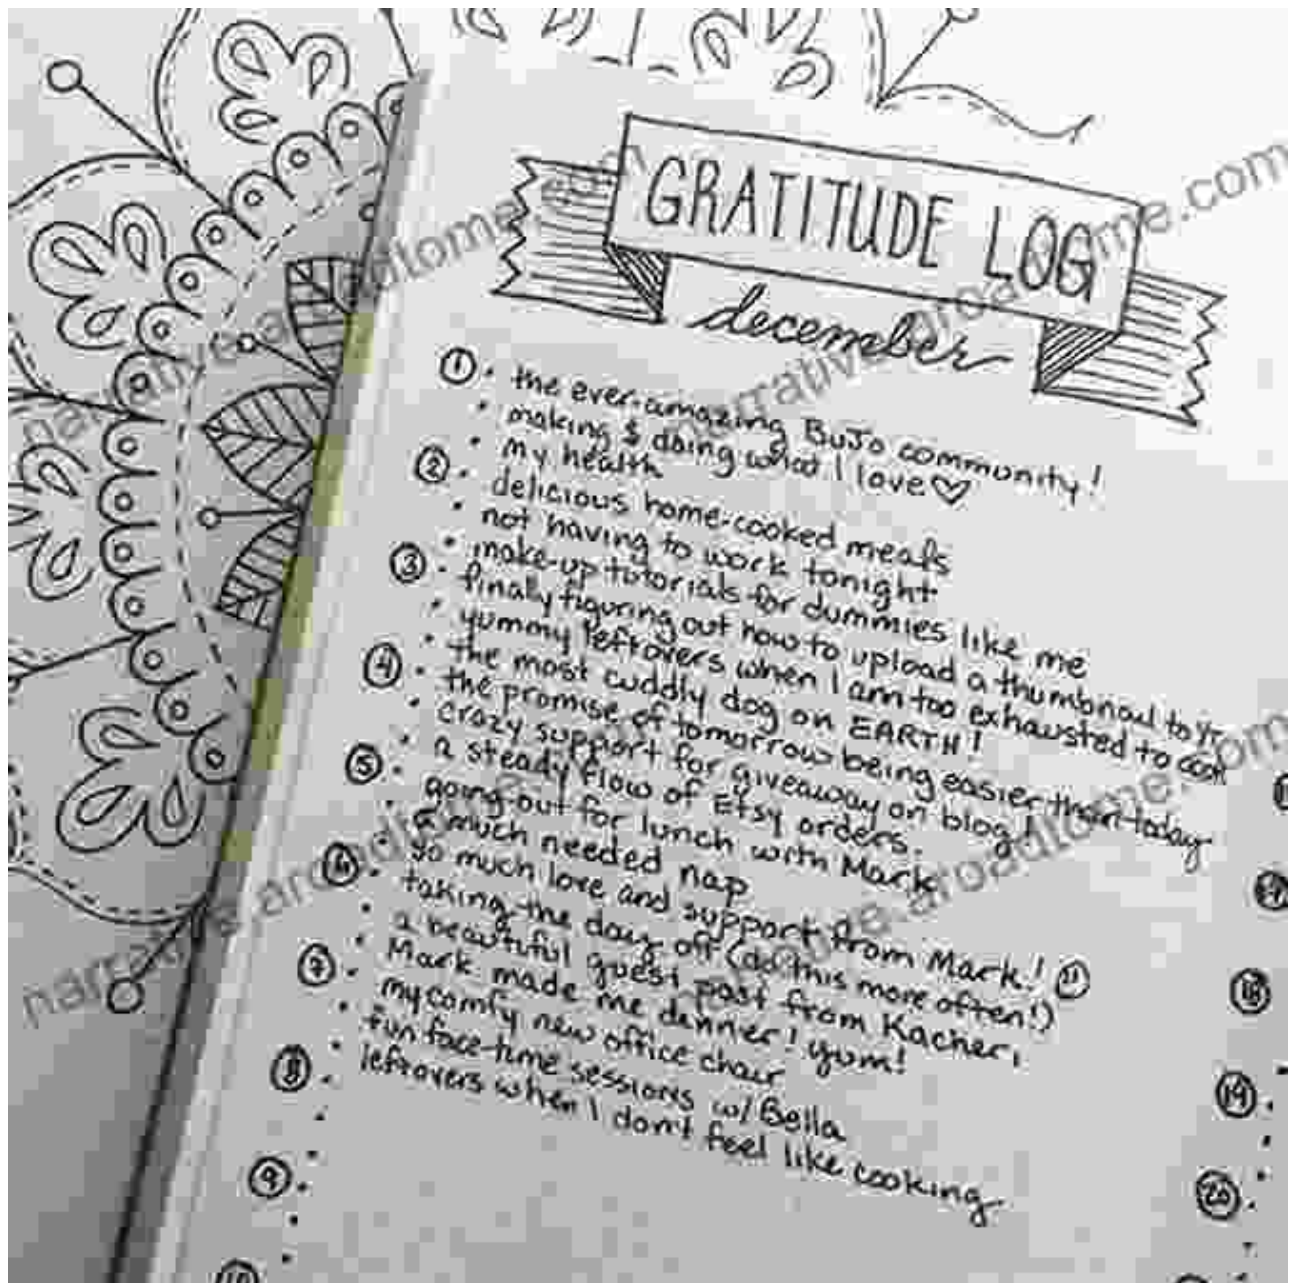 GRATITUDE LOG
december
① · the ever-amazing BuJo community!
· making & doing what I love ♡
· my health
② · delicious home-cooked meals
· not having to work tonight
· make-up tutorials for dummies like me
③ · finally figuring out how to upload a thumbnail to yt
· yummy leftovers when I am too exhausted to cook
· the most cuddly dog on EARTH!
④ · the promise of tomorrow being easier than today
· crazy support for giveaway on blog!
· a steady flow of Etsy orders.
⑤ · going out for lunch with Mark
· a much needed nap
· so much love and support from Mark!
⑥ · taking the day off (do this more often!)
· a beautiful guest post from Kacheri
· Mark made me dinner! yum!
⑦ · my comfy new office chair
· fun face-time sessions w/ Bella
· leftovers when I don't feel like cooking
⑧
⑨
⑩
⑱
⑲
⑳
narrative.aroadtome.com
narrative.aroadtome.com
narrative.aroadtome.com
narrative.aroadtome.com